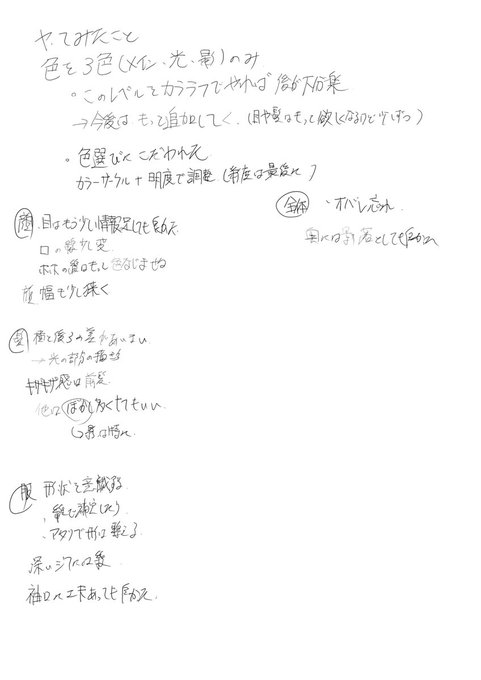 やってみたこと
色を3色(メイン、光、影)のみ
・このレベルをカララフでやれば後が大分楽
→今後はもっと追加してく。(目や髪はもっと欲しくなるので少しずつ)
・色選びにこだわれた
カラーサークル+明度で調整(彩度は最後に)
全体 ・オバレ忘れ
奥には影落としても良かった
顔 ・目はもう少し情報足しても良かった
口の影少し変
ホホの影はもっと色なじませる
顔幅も少し狭く
髪 横と後ろの差があいまい
→光の部分の描き
ギザギザ感は前髪
他はぼかし多くてもいい
服 形状を意識する
・アタリで形は整える
深いシワには影
袖口に工夫あっても良かった